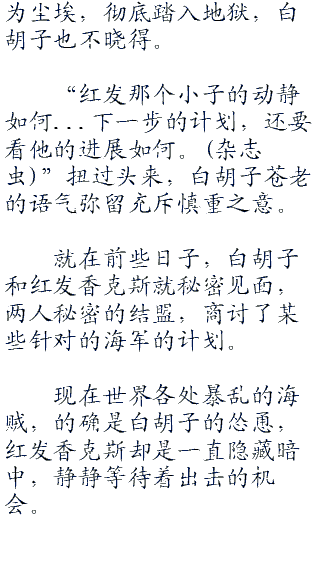 为尘埃，彻底踏入地狱，白
胡子也不晓得。
“红发那个小子的动静
如何...下一步的计划，还要
看他的进展如何。(杂志
虫)”扭过头来，白胡子苍老
的语气弥留充斥慎重之意。
就在前些日子，白胡子
和红发香克斯就秘密见面，
两人秘密的结盟，商讨了某
些针对的海军的计划。
现在世界各处暴乱的海
贼，的确是白胡子的怂恿，
红发香克斯却是一直隐藏暗
中，静静等待着出击的机
会。